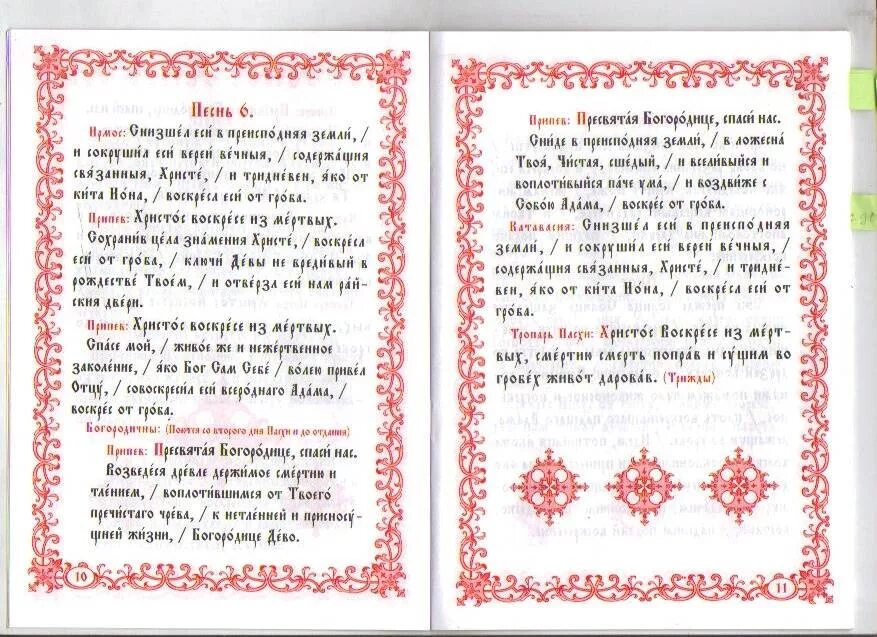 Песнь 6.
Ирмос: Снизше́л еси́ в преиспо́дняя земли́, /
и сокруши́л еси́ вереи́ ве́чныя, / содержа́щия
свя́занныя, Христе́, / и тридне́вен, я́ко от
ки́та Ио́на, / воскре́сл еси́ от гро́ба.
Припев: Христо́с воскре́се из ме́ртвых.
Сохрани́в це́ла зна́мения Христе́, / воскре́сл
еси́ от гро́ба, / ключи́ Де́вы не вреди́вый в
рождестве́ Твое́м, / и отве́рзл еси́ нам ра́й-
ския две́ри.
Припев: Христо́с воскре́се из ме́ртвых.
Спа́се мой, / живо́е же и неже́ртвенное
заколе́ние, / я́ко Бог Сам Себе́ / во́лею приве́л
Отцу́, / совоскреси́л еси́ всеро́днаго Ада́ма, /
воскре́с от гро́ба.
Богородичны: (Поются со второго дня Пасхи и до отдания)
Припев: Пресвята́я Богоро́дице, спаси́ нас.
Возведе́ся дре́вле держи́мое сме́ртию и
тле́нием, / воплоти́вшимся от Твоего́
пречи́стаго чре́ва, / к нетле́нней и присносу́-
щней жи́зни, / Богоро́дице Де́во.
10
Припев: Пресвята́я Богоро́дице, спаси́ нас.
Сни́де в преиспо́дняя земли́, / в ложесна́
Твоя́, Чи́стая, сше́дый, / и всели́выйся и
воплоти́выйся па́че ума́, / и воздви́же с
Собо́ю Ада́ма, / воскре́с от гро́ба.
Катавасия: Снизше́л еси́ в преиспо́дняя
земли́, / и сокруши́л еси́ вереи́ ве́чныя, /
содержа́щия свя́занныя, Христе́, / и тридне́-
вен, я́ко от ки́та Ио́на, / воскре́сл еси́ от
гро́ба.
Тропарь Пасхи: Христо́с Воскре́се из ме́рт-
вых, сме́ртию смерть попра́в и су́щим во
гробе́х живо́т дарова́в. (Трижды)
11